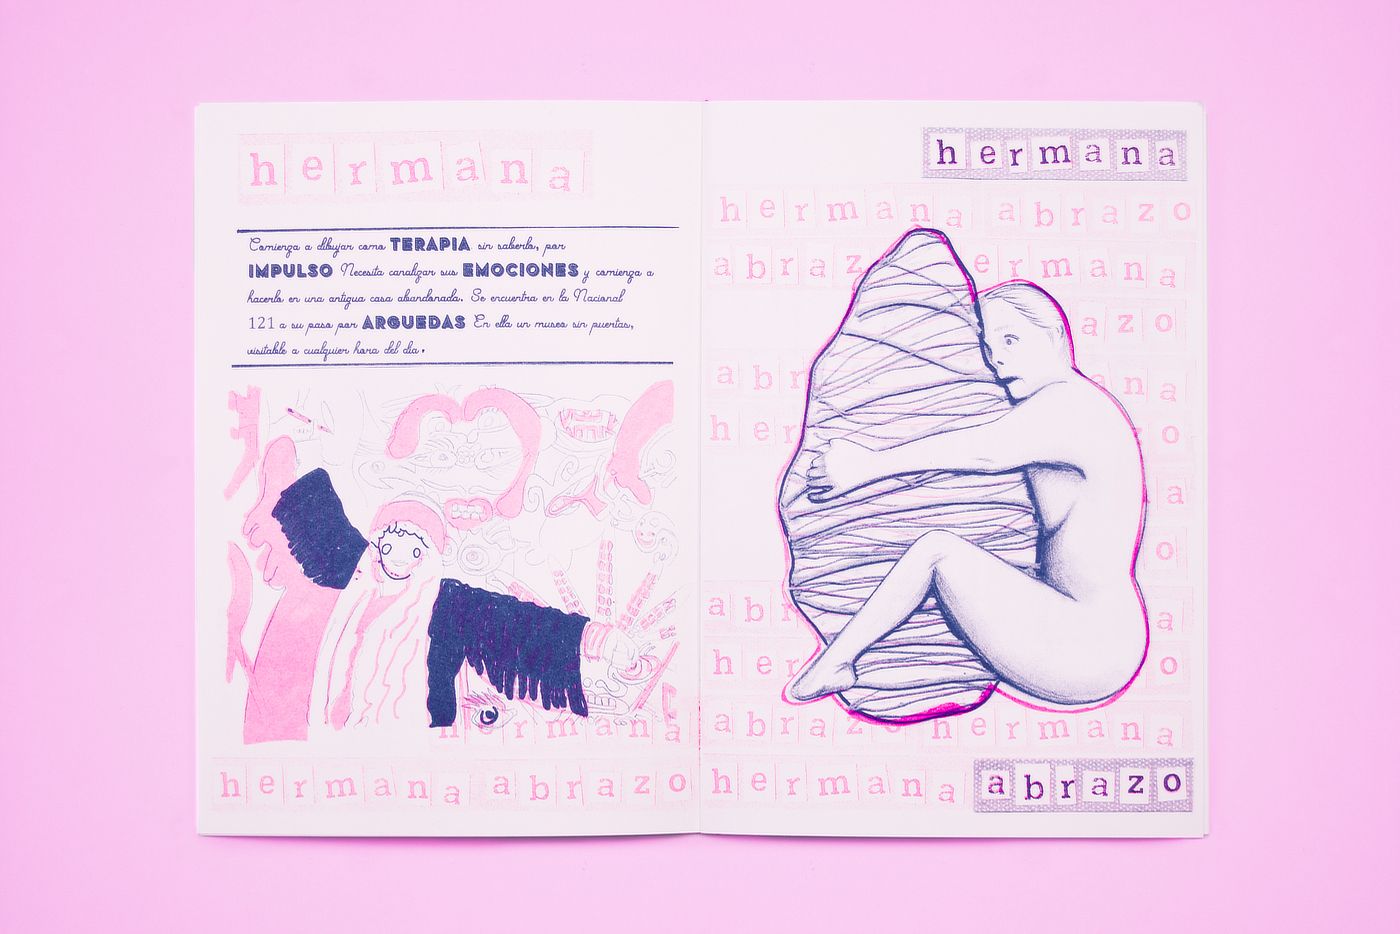 hermana
Comienza a dibujar como TERAPIA sin saberlo, por
IMPULSO Necesita canalizar sus EMOCIONES y comienza a
hacerlo en una antigua casa abandonada. Se encuentra en la Nacional
121 a su paso por ARGUEDAS En ella un museo sin puertas,
visitable a cualquier hora del día.
hermana
hermana abrazo
hermana
hermana abrazo
abraz ermana
azo
abr ana
her o
a
o
abr a
her o
abrazo hermana
hermana abrazo